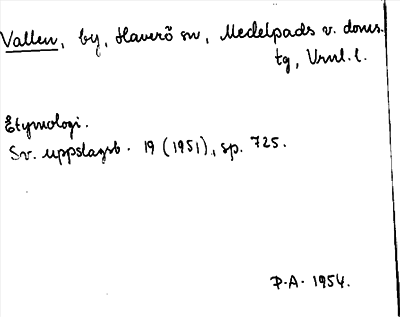 Vallen, by, Haverö sn, Medelpads v. doms.
tg, Vrnl. l.
Etymologi.
Sv. uppslagsb. 19 (1951), sp. 725.
P.A. 1954.